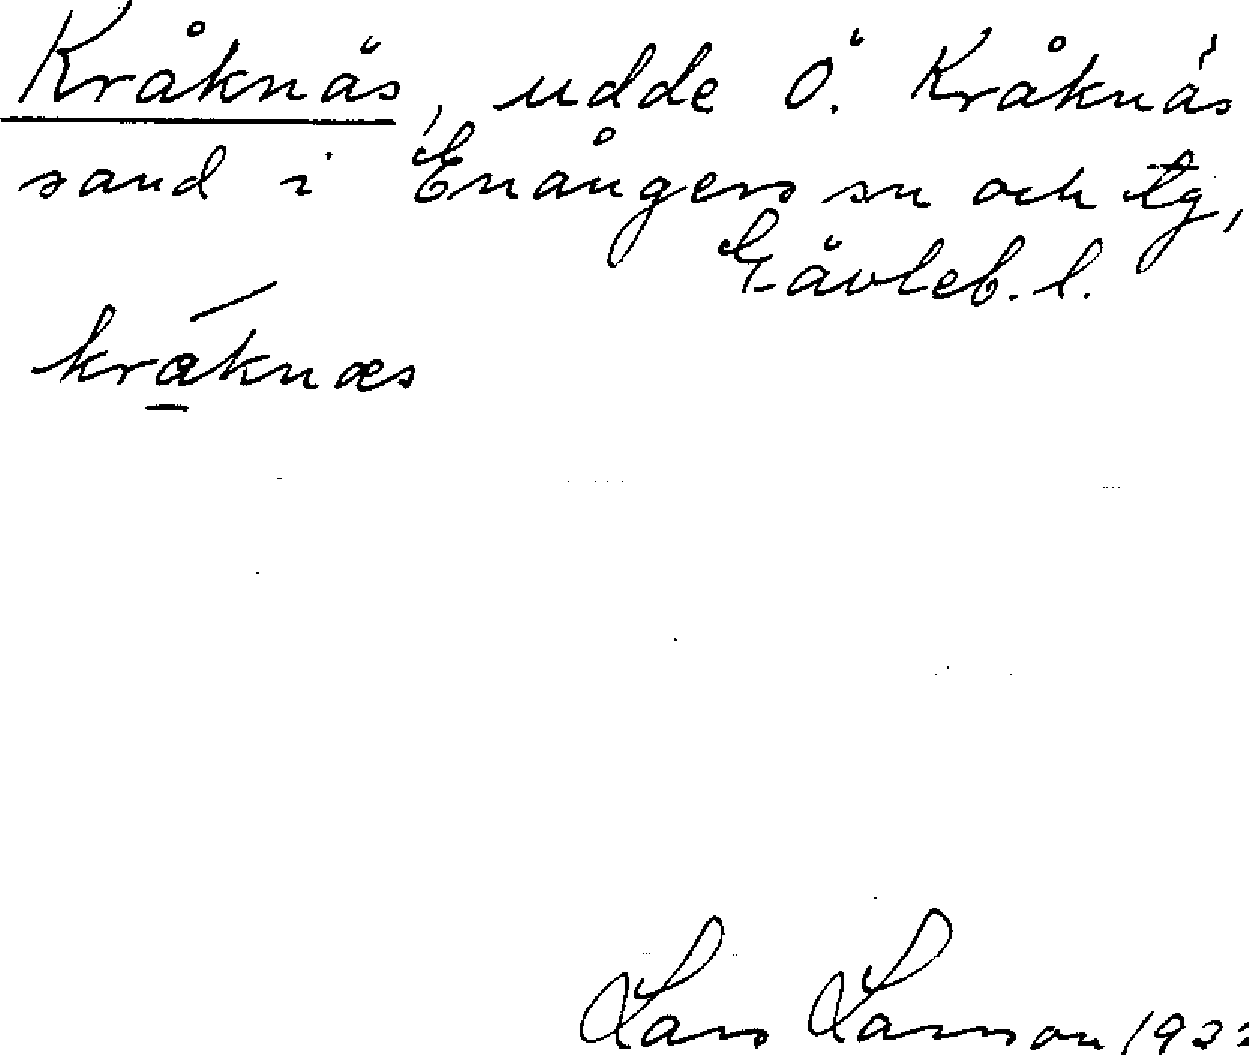 Kråknäs, udde Ö. Kråknäs
sand i Enångers sn och tg,
Gävleb. l.
kråknæs
Lars Larsson